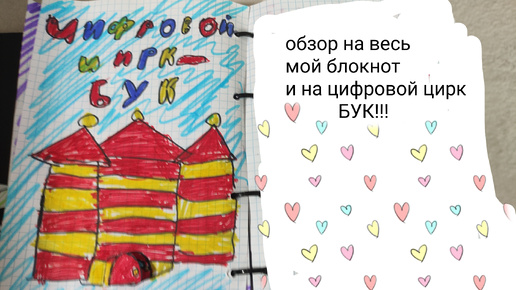 Цифровой
цирк-
БУК
обзор на весь
мой блокнот
и на цифровой цирк
БУК!!!